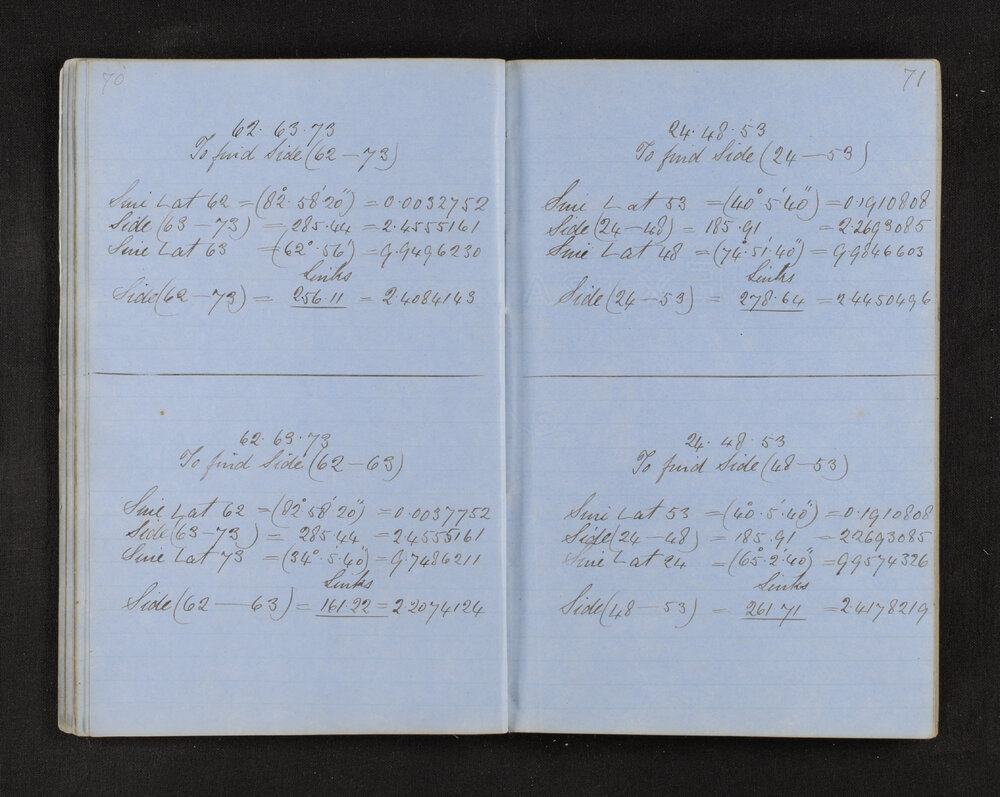 70
62. 63. 73
To find Side (62 — 73)
Sine ∠ at 62 = (82°. 58'. 20") = 0.0032752
Side (63 — 73) = 285.44 = 2.4555161
Sine ∠ at 63 = (62°. 56') = 9.9496230
Links
Side (62 — 73) = 256.11 = 2.4084143
62. 63. 73
To find Side (62 — 63)
Sine ∠ at 62 = (82°. 58'. 20") = 0.0037752
Side (63 — 73) = 285.44 = 2.4555161
Sine ∠ at 73 = (34°. 5'. 40") = 9.7486211
Links
Side (62 — 63) = 161.22 = 2.2074124
71
24. 48. 53
To find Side (24 — 53)
Sine ∠ at 53 = (40°. 5'. 40") = 0.1910808
Side (24 — 48) = 185.91 = 2.2693085
Sine ∠ at 48 = (74°. 51'. 40") = 9.9846603
Links
Side (24 — 53) = 278.64 = 2.4450496
24. 48. 53
To find Side (48 — 53)
Sine ∠ at 53 = (40°. 5'. 40") = 0.1910808
Side (24 — 48) = 185.91 = 2.2693085
Sine ∠ at 24 = (65°. 2'. 40") = 9.9574326
Links
Side (48 — 53) = 261.71 = 2.4178219